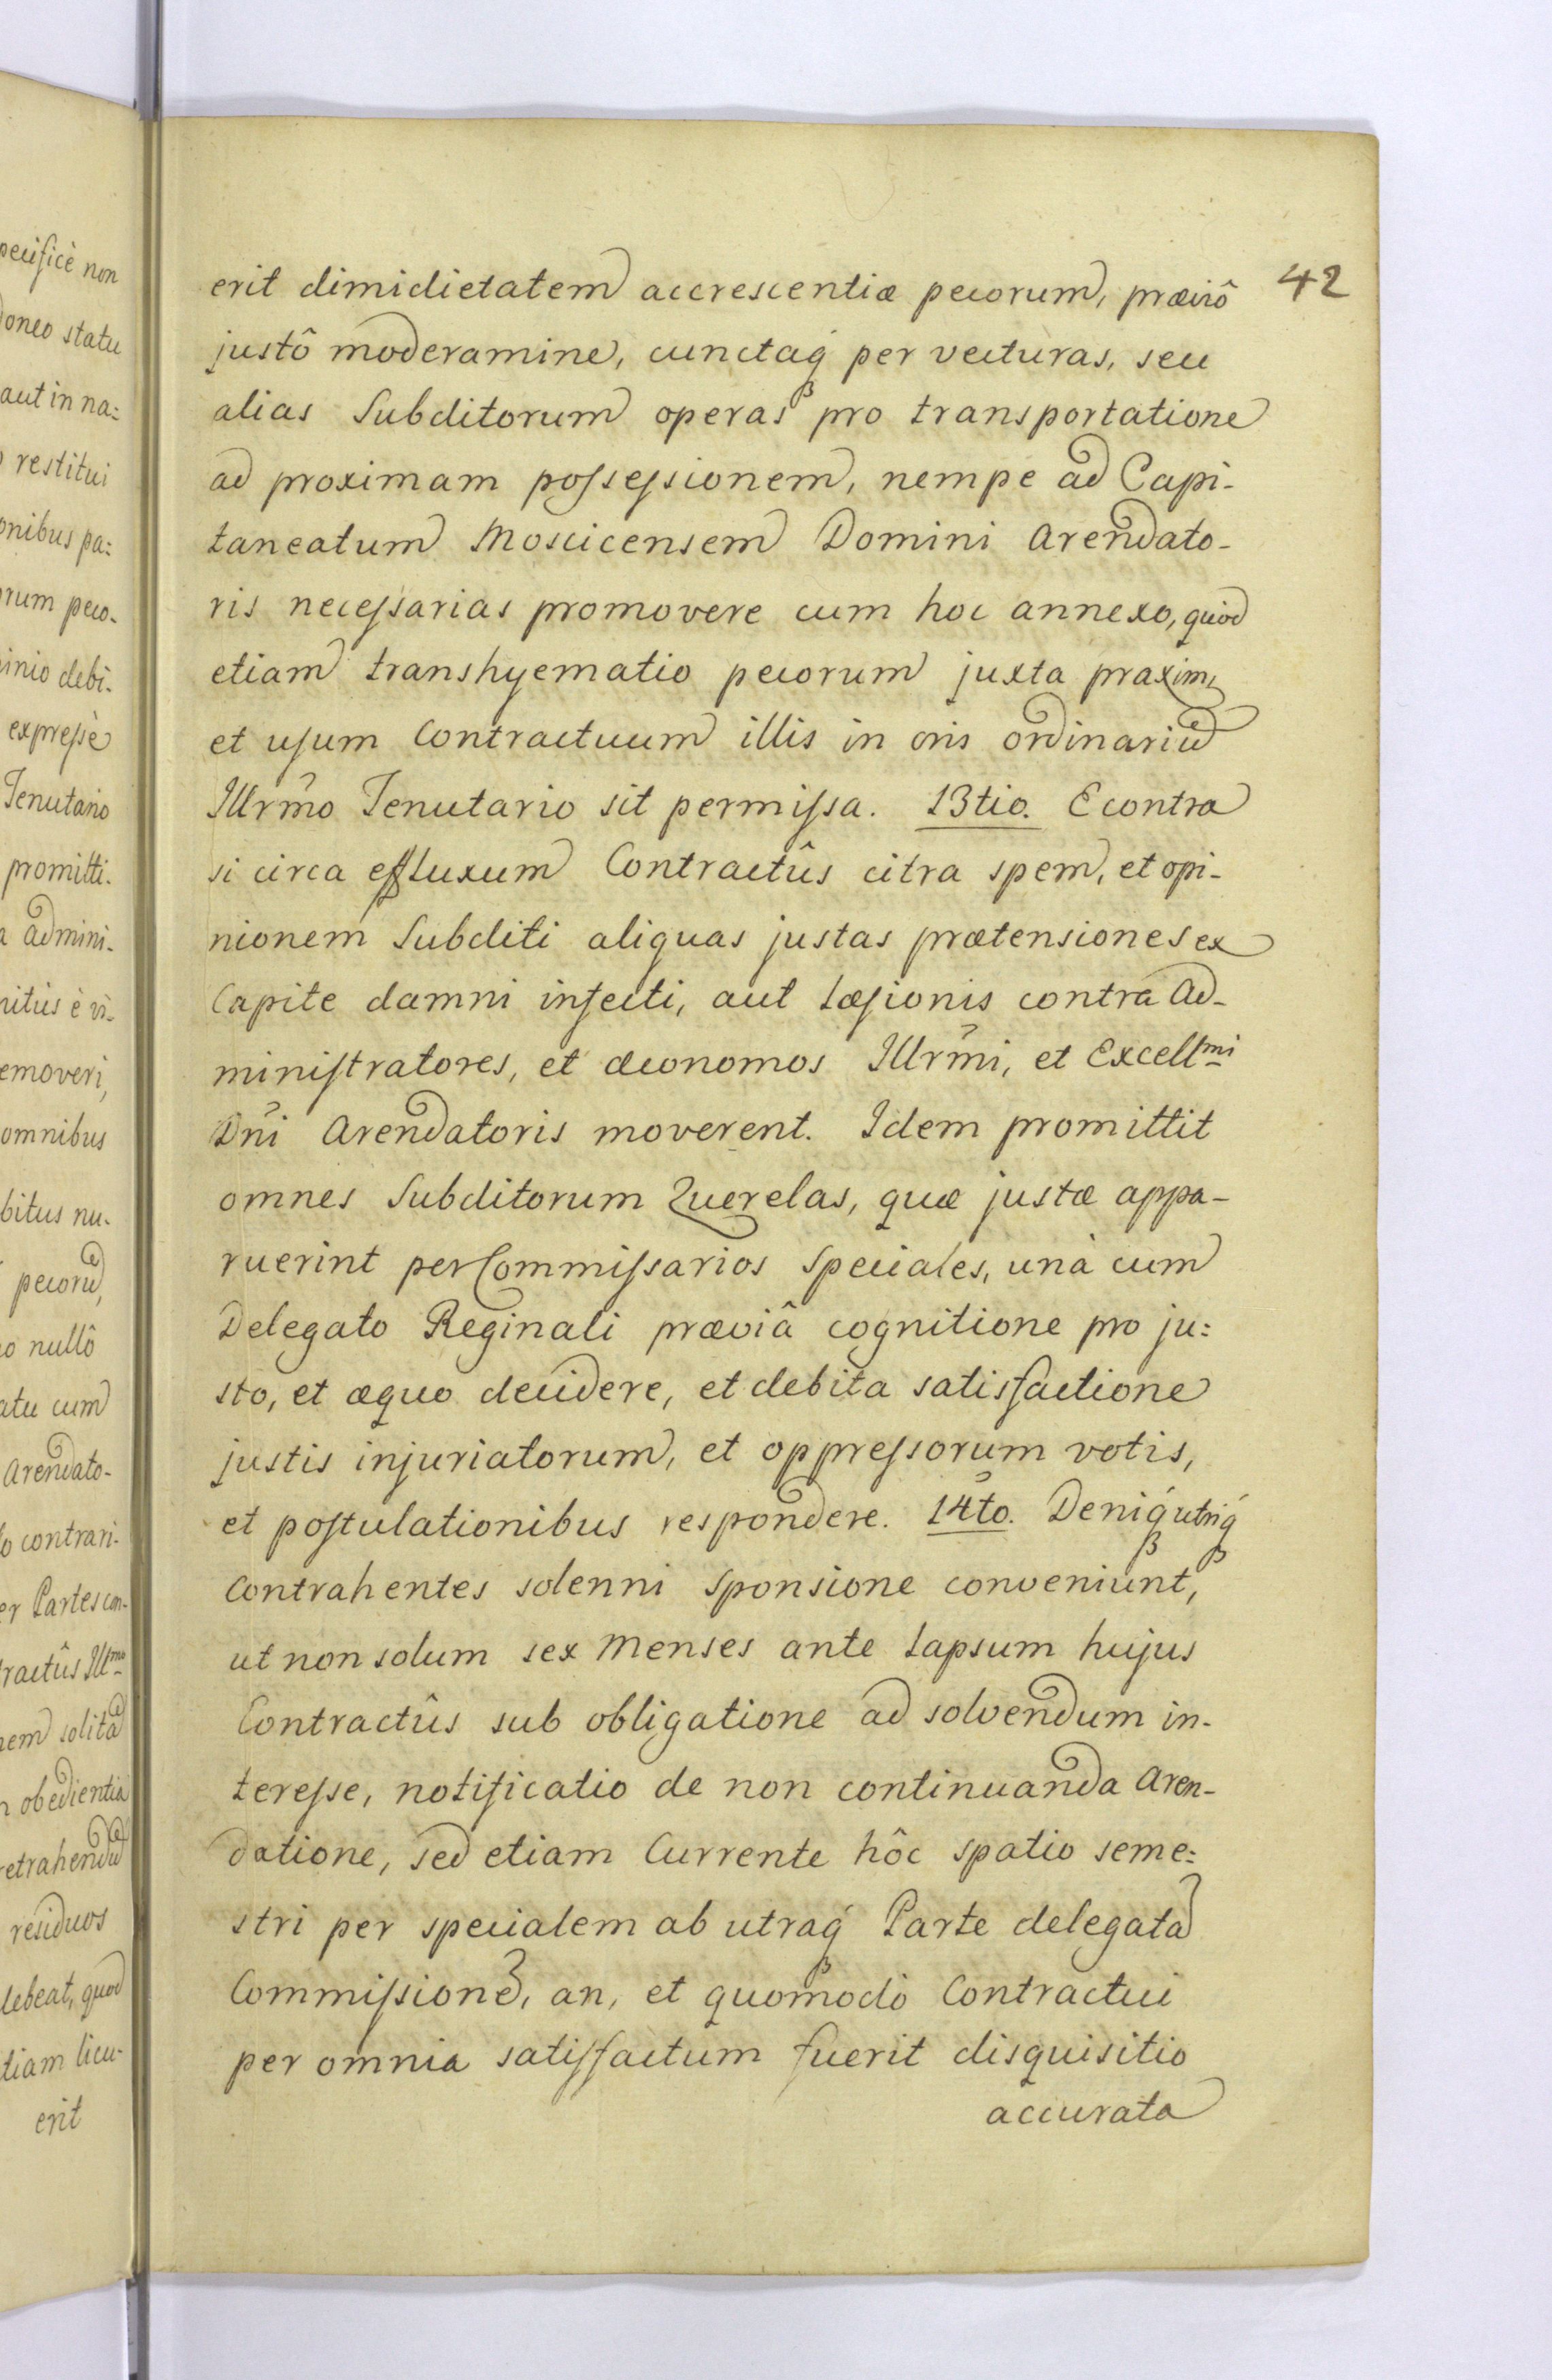 pecificè non
doneo statu
aut in na:
restitui
onibus pa:
orum peco-
inio debi-
expreſsè
Tenutario
promitti-
a admini-
nitùs è vi-
emoveri,
omnibus
bitus nu-
pecorũ,
nullô
atu cum
Arendato-
lo contrari-
er Partes con-
tractûs Ill^mo
nem solitã
n obedientiã
retrahendũ
residuos
debeat, quod
tiam licu-
erit
42
erit dimidietatem accrescentiæ pecorum, præviô
justô moderamine, cunctaq́ per vecturas, seu
alias Subditorum operas pro transportatione
ad proximam poſseſsionem, nempe ad Capi-
taneatum Moscicensem Domini Arendato-
ris neceſsarias promovere cum hoc annexo, quòd
etiam transhyematio pecorum juxta praxim,
et uſum Contractuum illis in oris ordinariũ
Illrm̃o Tenutario sit permiſsa. 13tio. E contra
si circa effluxum Contractûs citra spem, et opi-
nionem Subditi aliquas justas prætensiones ex
Capite damni infecti, aut læſionis contra Ad-
miniſtratores, et œconomos Illrm̃i, et Excell^mi
Dn̄i Arendatoris moverent. Idem promittit
omnes Subditorum Querelas, quæ justæ appa-
ruerint per Commiſsarios Speciales, unà cum
Delegato Reginali præviâ cognitione pro ju:
sto, et æquo decidere, et debita satisfactione
justis injuriatorum, et oppreſsorum votis,
et poſtulationibus respondere. 14to. Deniq́ utriq́
Contrahentes solenni Sponsione conveniunt,
ut non solum sex Menses ante lapsum hujus
Contractûs sub obligatione ad solvendum in-
tereſse, notificatio de non continuanda Aren-
datione, sed etiam Currente hôc spatio seme:
stri per specialem ab utraq́ Parte delegatã
Commiſsionẽ, an, et quomodò Contractui
per omnia satiſfactum fuerit disquisitio
accurata